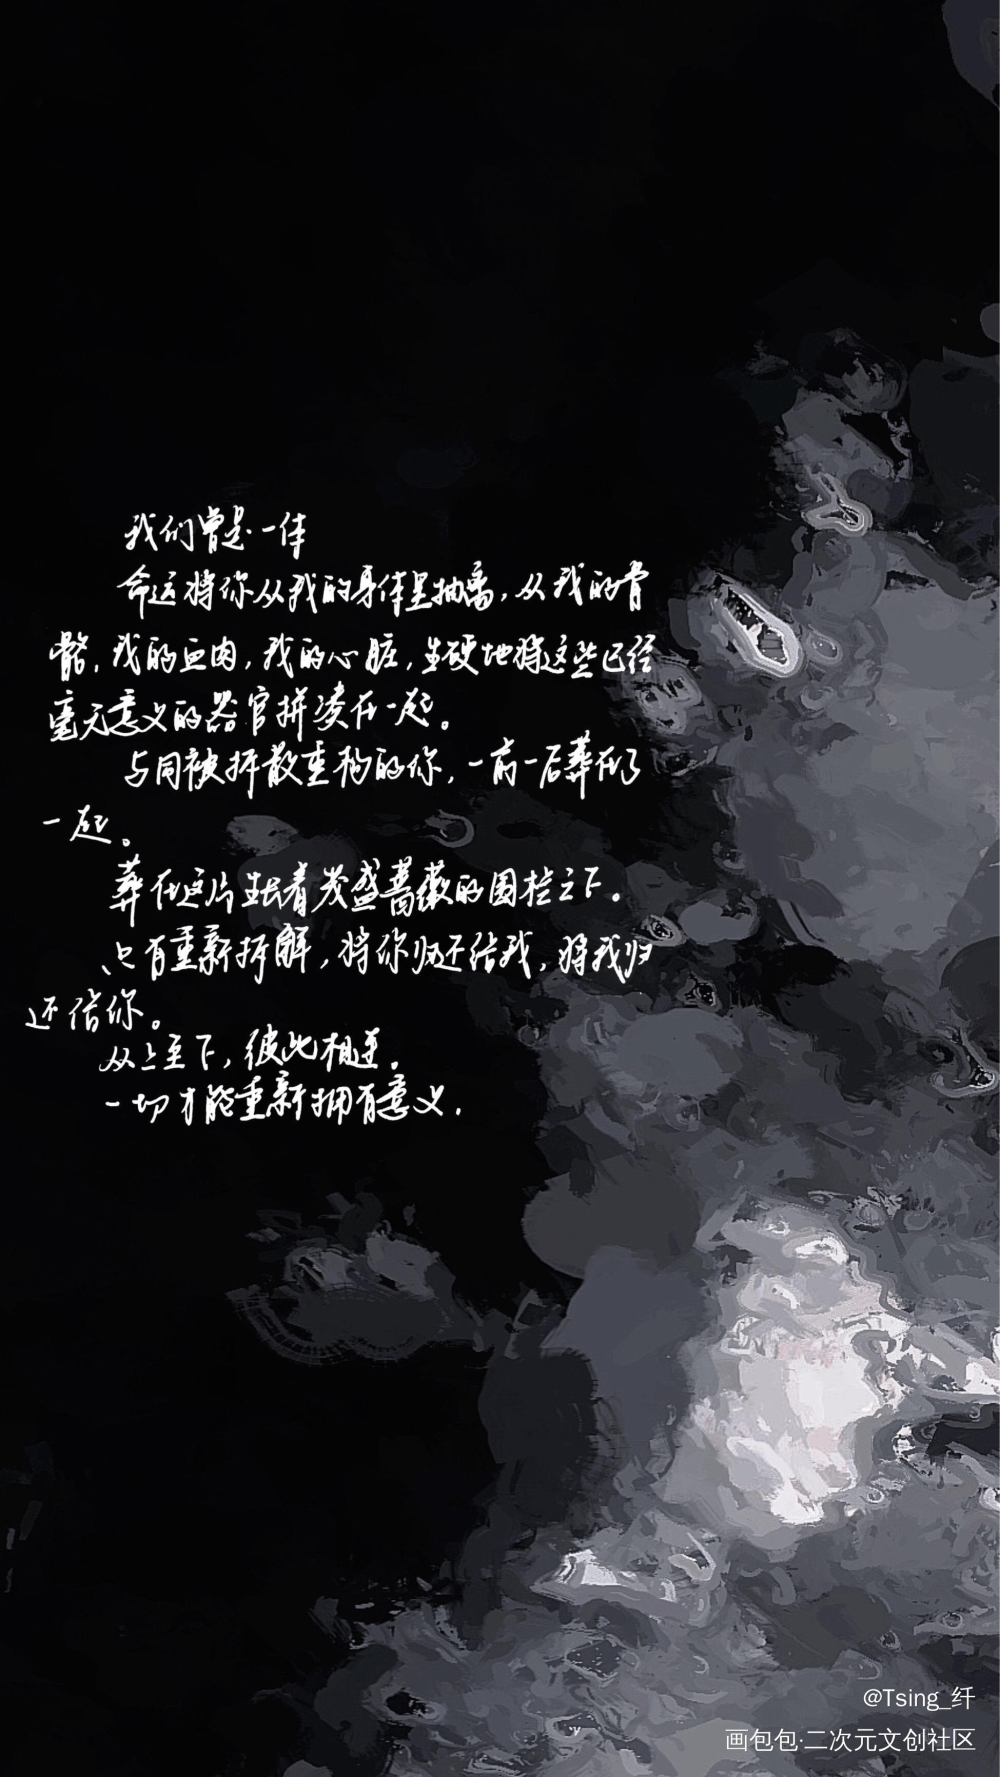 我们曾是一体
命运将你从我的身体里抽离，从我的骨
骼，我的血肉，我的心脏，生硬地将这些已经
毫无意义的器官拼凑在一起。
与同被拆散重构的你，一前一后葬在了
一起。
葬在这片生长着茂盛蔷薇的围栏之下。
只有重新拆解，将你归还给我，将我归
还给你。
从上至下，彼此相连。
一切才能重新拥有意义.
@Tsing_纤
画包包·二次元文创社区